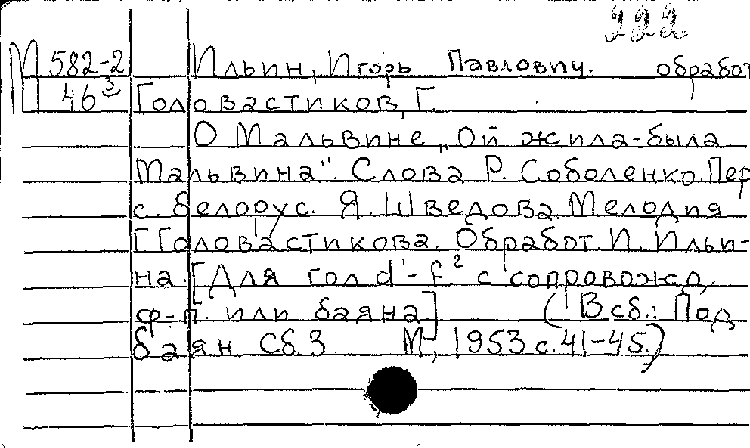 222
М 582-2 Ильин, Игорь Павлович. обработ
П 46³ Головастиков, Г.
О Мальвине „Ой жила-была
Мальвина". Слова Р. Соболенко. Пер
с. белорус. Я. Шведова. Мелодия
Г Головастикова. Обработ. И. Ильи-
на. [Для гол d'-f² с сопровожд,
ф-п. или баяна] (В сб.: Под
баян Сб. 3 М, 1953 с. 41-45.)